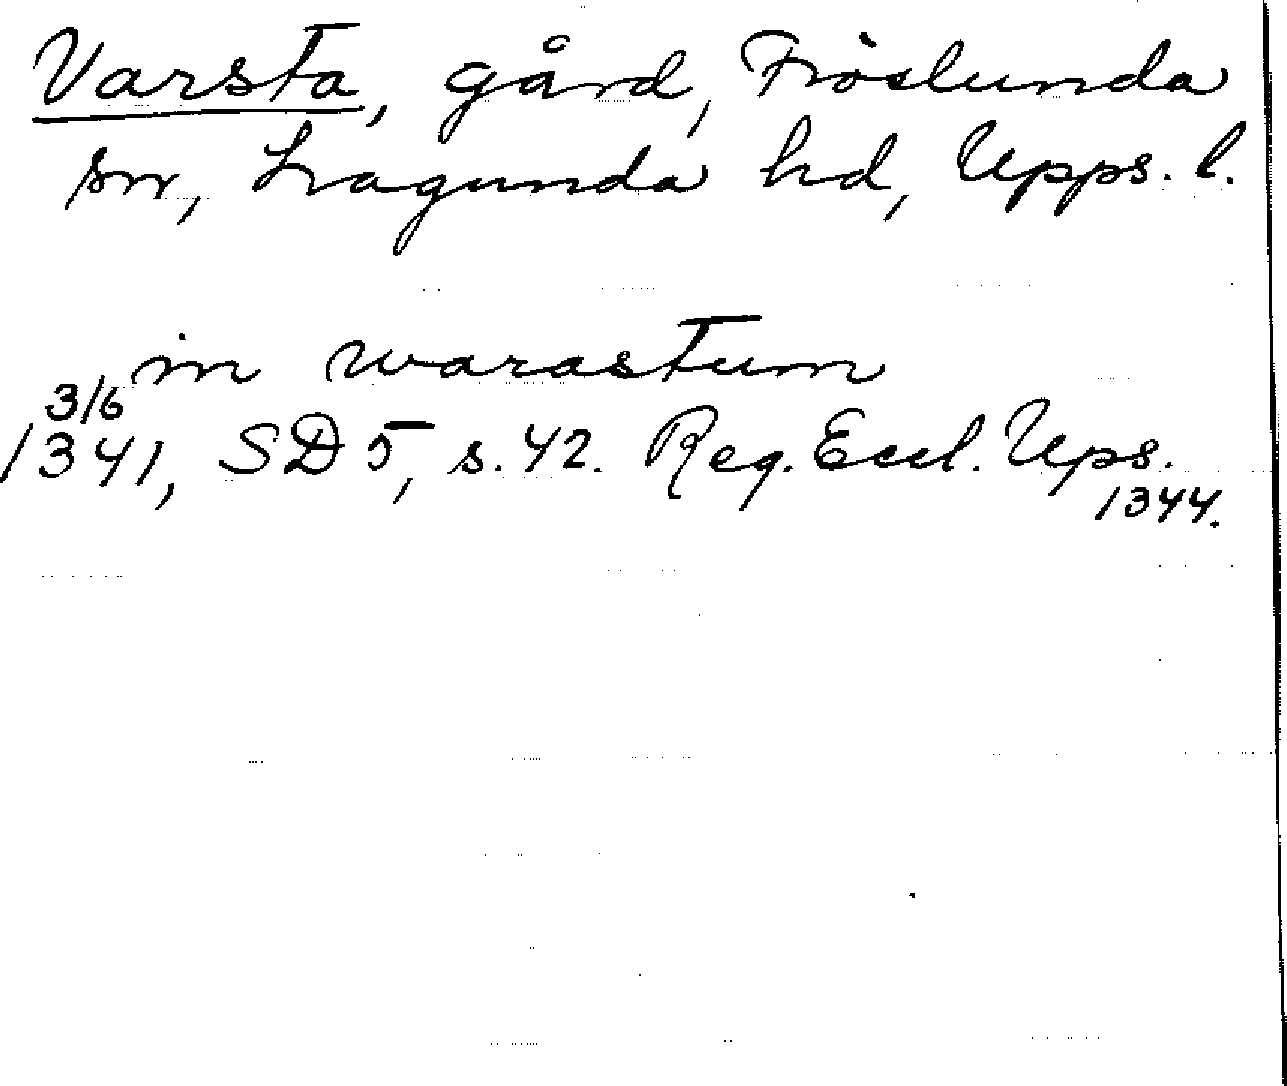 Varsta, gård, Fröslunda
sn, Lagunda hd, Upps. l.
in warastum
3/6
1341, SD 5, s. 42. Reg. Eccl. Ups.
1344.